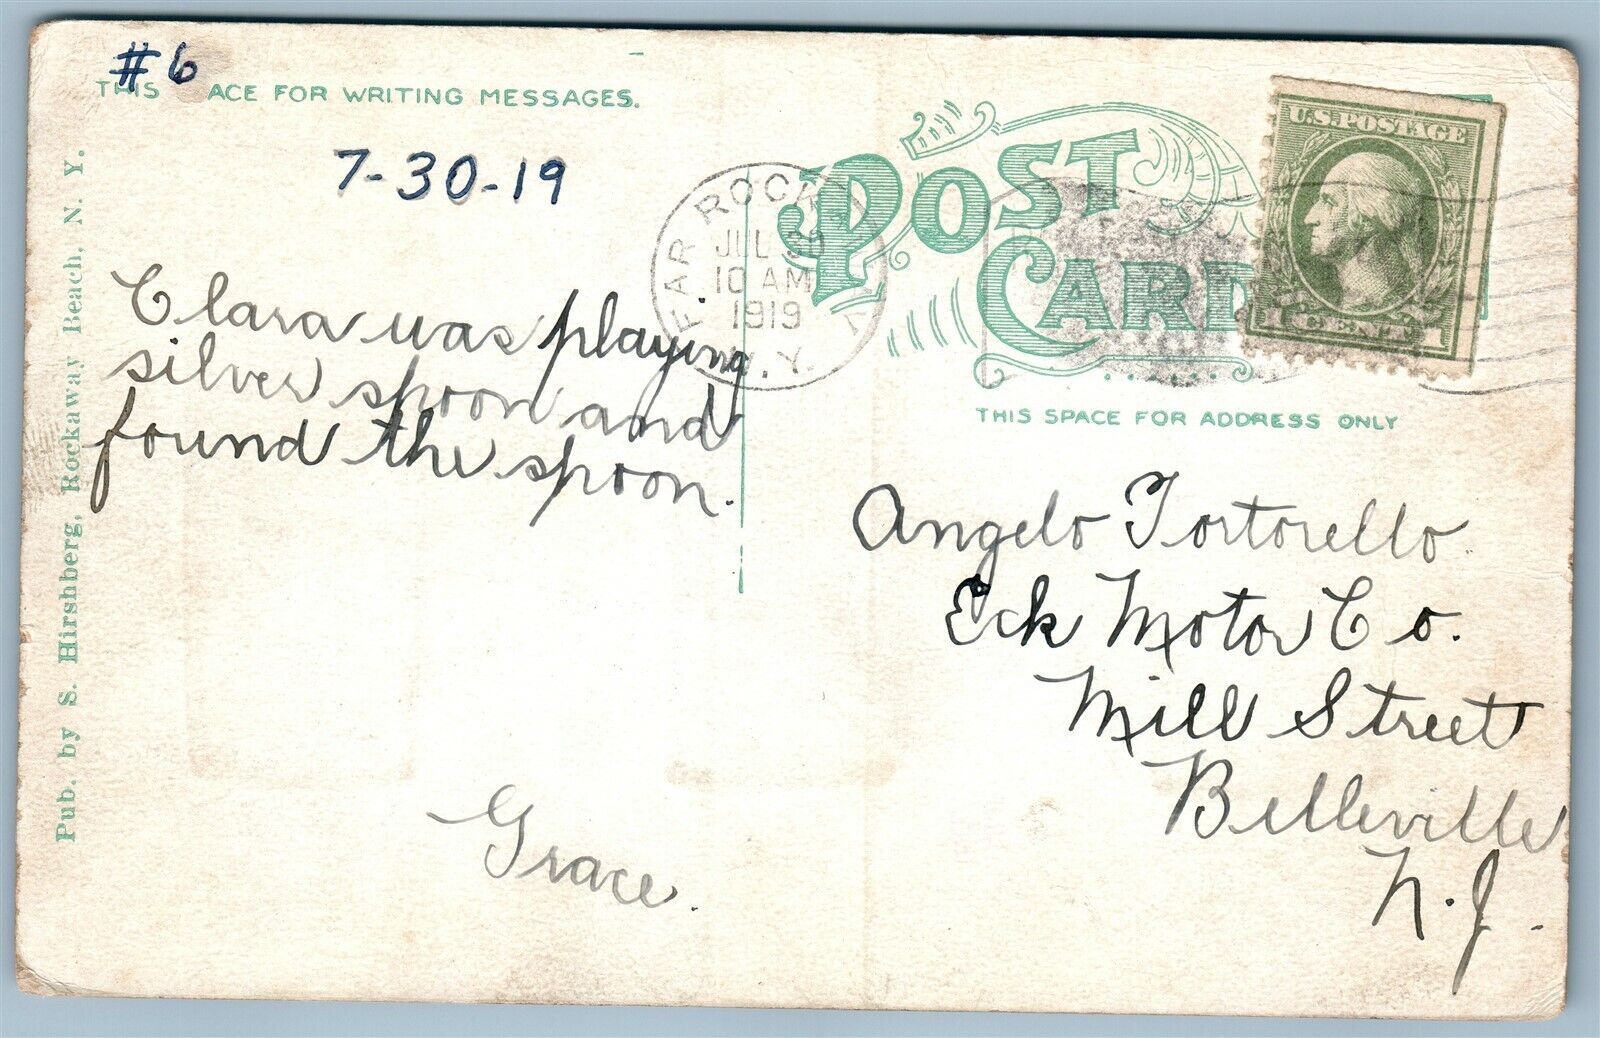 #6
THIS ACE FOR WRITING MESSAGES.
7-30-19
Clara was playing
silver spoon and
found the spoon.
Grace.
Pub. by S. Hirshberg, Rockaway Beach, N. Y.
POST CARD
FAR ROCK
JUL 30
10 AM
1919
N.Y.
U.S. POSTAGE
1 CENT 1
THIS SPACE FOR ADDRESS ONLY
Angelo Tortorello
Eck Motor Co.
Mill Street
Belleville
N.J.